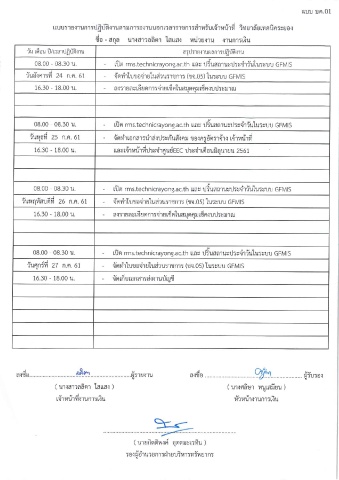 แบบ บค.01
แบบรายงานการปฏิบัติงานตามภาระงานนอกเวลาราชการสำหรับเจ้าหน้าที่ วิทยาลัยเทคนิคระยอง
ชื่อ - สกุล นางสาวลลิตา ใสแสง หน่วยงาน งานการเงิน
วัน เดือน ปี/เวลาปฏิบัติงาน สรุปรายงานผลการปฏิบัติงาน
08.00 - 08.30 น. - เปิด rms.technicrayong.ac.th และ ปริ้นสถานะประจำวันในระบบ GFMIS
วันอังคารที่ 24 ก.ค. 61 - จัดทำใบขอจ่ายในส่วนราชการ (ขจ.05) ในระบบ GFMIS
16.30 - 18.00 น. - ลงรายละเอียดการจ่ายเช็คในสมุดคุมเช็คงบประมาณ
08.00 - 08.30 น. - เปิด rms.technicrayong.ac.th และ ปริ้นสถานะประจำวันในระบบ GFMIS
วันพุธที่ 25 ก.ค. 61 - จัดทำเอกสารนำส่งประกันสังคม ของครูอัตราจ้าง เจ้าหน้าที่
16.30 - 18.00 น. และเจ้าหน้าที่ประจำศูนย์EEC ประจำเดือนมิถุนายน 2561
08.00 - 08.30 น. - เปิด rms.technicrayong.ac.th และ ปริ้นสถานะประจำวันในระบบ GFMIS
วันพฤหัสบดีที่ 26 ก.ค. 61 - จัดทำใบขอจ่ายในส่วนราชการ (ขจ.05) ในระบบ GFMIS
16.30 - 18.00 น. - ลงรายละเอียดการจ่ายเช็คในสมุดคุมเช็คงบประมาณ
08.00 - 08.30 น. - เปิด rms.technicrayong.ac.th และ ปริ้นสถานะประจำวันในระบบ GFMIS
วันศุกร์ที่ 27 ก.ค. 61 - จัดทำใบขอจ่ายในส่วนราชการ (ขจ.05) ในระบบ GFMIS
16.30 - 18.00 น. - จัดเก็บเอกสารส่งงานบัญชี
ลงชื่อ ผู้รายงาน ลงชื่อ ผู้รับรอง
( นางสาวลลิตา ใสแสง ) ( นางพลิชา หนูเสมียน )
เจ้าหน้าที่งานการเงิน หัวหน้างานการเงิน
รองผู้อำนวยการฝ่ายบริหารทรัพยากร